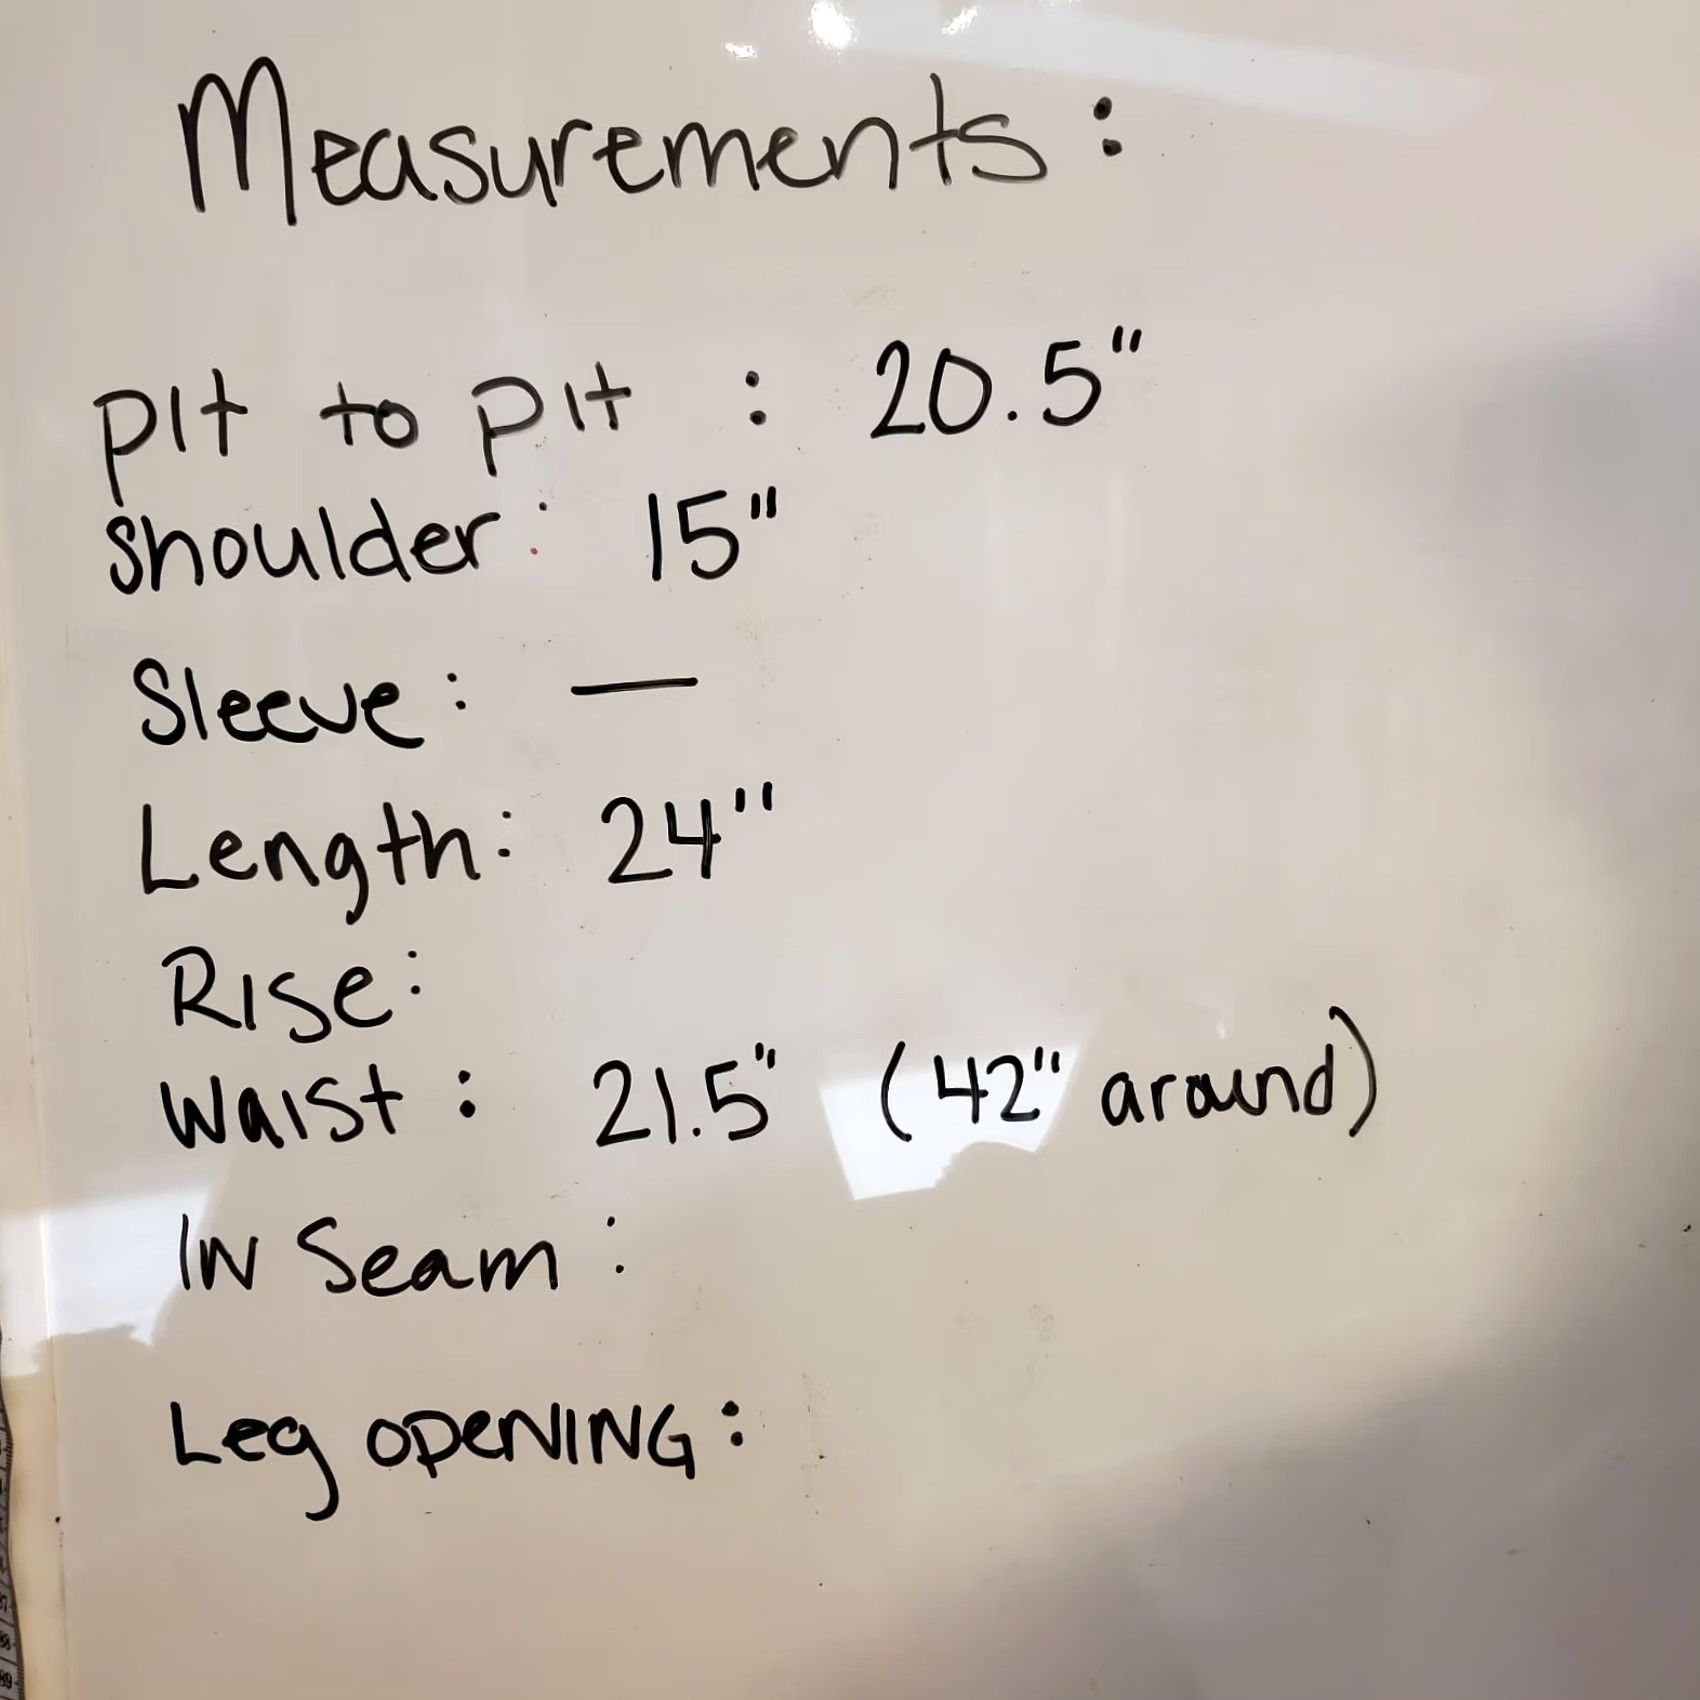 Measurements:
pit to pit : 20.5"
shoulder: 15"
Sleeve: —
Length: 24"
Rise:
Waist: 21.5" (42" around)
IN Seam:
Leg OPENING: